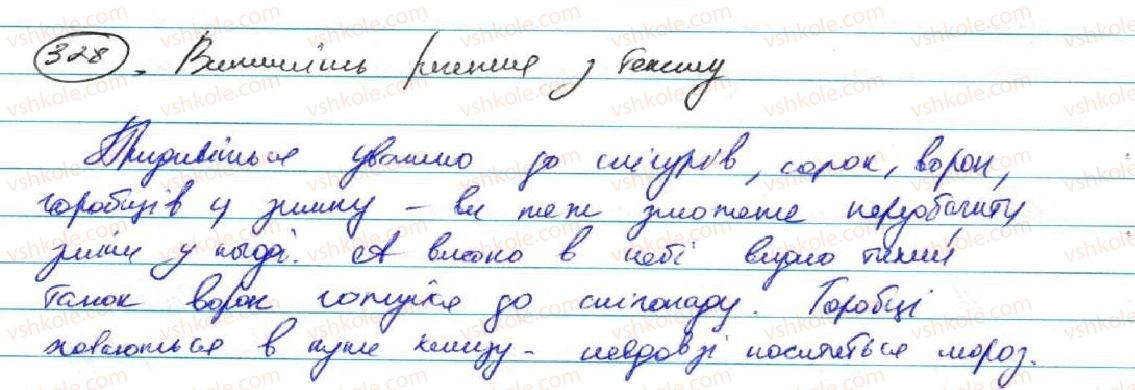 328. Випишіть речення з тексту
Придивіться уважно до снігурів, сорок, ворон,
горобців у зимку – ви теж зможете передбачити
зміни у погоді. А високо в небі видно тихий
танок ворон готуйся до снігопаду. Горобці
ховаються в купи хмизу – невдовзі посилиться мороз.